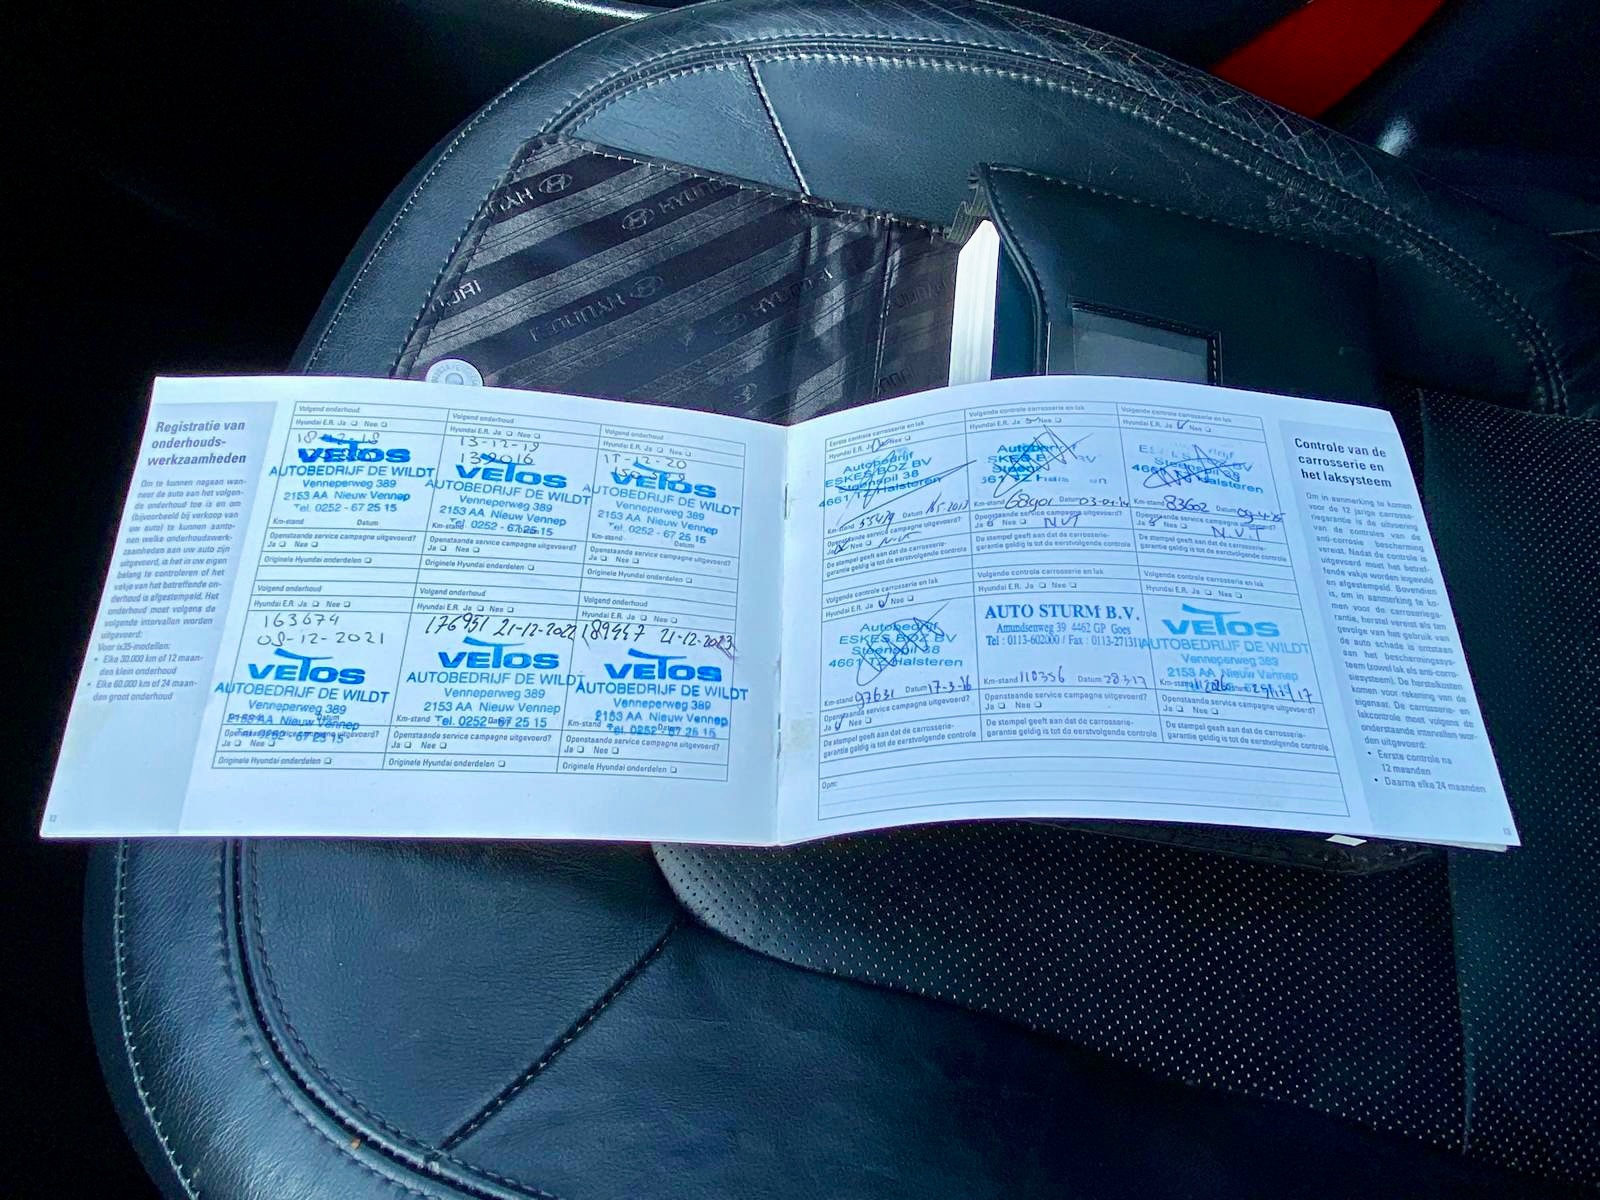 HYUNDAI
HYUNDAI
HYUNDAI
HYUNDAI
Registratie van
onderhouds-
werkzaamheden
Om te kunnen nagaan wan-
neer de auto aan het volgen-
de onderhoud toe is en om
(bijvoorbeeld bij verkoop van
uw auto) te kunnen aanto-
nen welke onderhoudswerk-
zaamheden aan uw auto zijn
uitgevoerd, is het in uw eigen
belang te controleren of het
vakje van het betreffende on-
derhoud is afgestempeld. Het
onderhoud moet volgens de
volgende intervallen worden
uitgevoerd:
Voor ix35-modellen:
• Elke 30.000 km of 12 maan-
den klein onderhoud
• Elke 60.000 km of 24 maan-
den groot onderhoud
12
Volgend onderhoud
Hyundai E.R. Ja ❑ Nee ❑
18-12-18
VEToS
AUTOBEDRIJF DE WILDT
Venneperweg 389
2153 AA Nieuw Vennep
Tel. 0252 - 67 25 15
Km-stand Datum
Openstaande service campagne uitgevoerd?
Ja ❑ Nee ❑
Originele Hyundai onderdelen ❑
Volgend onderhoud
Hyundai E.R. Ja ❑ Nee ❑
13-12-19
VEToS
AUTOBEDRIJF DE WILDT
Venneperweg 389
2153 AA Nieuw Vennep
Tel. 0252 - 67 25 15
Km-stand
Openstaande service campagne uitgevoerd?
Ja ❑ Nee ❑
Originele Hyundai onderdelen ❑
Volgend onderhoud
Hyundai E.R. Ja ❑ Nee ❑
17-12-20
VEToS
AUTOBEDRIJF DE WILDT
Venneperweg 389
2153 AA Nieuw Vennep
Tel. 0252 - 67 25 15
Km-stand Datum
Openstaande service campagne uitgevoerd?
Ja ❑ Nee ❑
Originele Hyundai onderdelen ❑
Volgend onderhoud
Hyundai E.R. Ja ❑ Nee ❑
163674
09-12-2021
VEToS
AUTOBEDRIJF DE WILDT
Venneperweg 389
2153 AA Nieuw Vennep
Tel. 0252 - 67 25 15
Ja ❑ Nee ❑
Originele Hyundai onderdelen ❑
Volgend onderhoud
Hyundai E.R. Ja ❑ Nee ❑
176951 21-12-2022
VEToS
AUTOBEDRIJF DE WILDT
Venneperweg 389
2153 AA Nieuw Vennep
Km-stand Tel. 0252 - 67 25 15
Openstaande service campagne uitgevoerd?
Ja ❑ Nee ❑
Originele Hyundai onderdelen ❑
Volgend onderhoud
Hyundai E.R. Ja ❑ Nee ❑
189447 21-12-2023
VEToS
AUTOBEDRIJF DE WILDT
Venneperweg 389
2153 AA Nieuw Vennep
Km-stand Tel. 0252 - 67 25 15
Openstaande service campagne uitgevoerd?
Ja ❑ Nee ❑
Originele Hyundai onderdelen ❑
Eerste controle carrosserie en lak
Hyundai E.R. Ja Nee ❑
Autobedrijf
ESKES BOZ BV
Steenspil 38
4661 TZ Halsteren
Km-stand 33479 Datum
Openstaande service campagne uitgevoerd?
De stempel geeft aan dat de carrosserie-
garantie geldig is tot de eerstvolgende controle
Volgende controle carrosserie en lak
Hyundai E.R. Ja Nee ❑
Autobedrijf
Km-stand 68901 Datum 03-04-14
Openstaande service campagne uitgevoerd?
Ja ❑ Nee ❑ N.V.T
De stempel geeft aan dat de carrosserie-
garantie geldig is tot de eerstvolgende controle
Volgende controle carrosserie en lak
Hyundai E.R. Ja Nee ❑
Steenspil
Halsteren
Km-stand 83602 Datum
Openstaande service campagne uitgevoerd?
Ja ❑ Nee ❑ N.V.T
De stempel geeft aan dat de carrosserie-
garantie geldig is tot de eerstvolgende controle
Volgende controle carrosserie en lak
Hyundai E.R. Ja Nee ❑
Autobedrijf
ESKES BOZ BV
Steenspil 38
4661 TZ Halsteren
Km-stand 97631 Datum 17-3-16
Openstaande service campagne uitgevoerd?
Ja Nee ❑
De stempel geeft aan dat de carrosserie-
garantie geldig is tot de eerstvolgende controle
Volgende controle carrosserie en lak
Hyundai E.R. Ja ❑ Nee ❑
AUTO STURM B.V.
Amundsenweg 39 4462 GP Goes
Tel : 0113-602000 / Fax : 0113-271311
Km-stand 110356 Datum 28-3-17
Openstaande service campagne uitgevoerd?
Ja ❑ Nee ❑
De stempel geeft aan dat de carrosserie-
garantie geldig is tot de eerstvolgende controle
Volgende controle carrosserie en lak
Hyundai E.R. Ja ❑ Nee ❑
VEToS
AUTOBEDRIJF DE WILDT
Venneperweg 389
2153 AA Nieuw Vennep
Km-stand
Openstaande service campagne uitgevoerd?
Ja ❑ Nee ❑
De stempel geeft aan dat de carrosserie-
garantie geldig is tot de eerstvolgende controle
Opm:
Controle van de
carrosserie en
het laksysteem
Om in aanmerking te komen
voor de 12 jarige carrosse-
riegarantie is de uitvoering
van de controles van de
anti-corrosie bescherming
vereist. Nadat de controle is
uitgevoerd moet het betref-
fende vakje worden ingevuld
en afgestempeld. Bovendien
is, om in aanmerking te ko-
men voor de carrosseriega-
rantie, herstel vereist als ten
gevolge van het gebruik van
de auto schade is ontstaan
aan het beschermingssys-
teem (zowel lak als anti-corro-
siesysteem). De herstelkosten
komen voor rekening van de
eigenaar. De carrosserie- en
lakcontrole moet volgens de
onderstaande intervallen wor-
den uitgevoerd:
• Eerste controle na
12 maanden
• Daarna elke 24 maanden
13